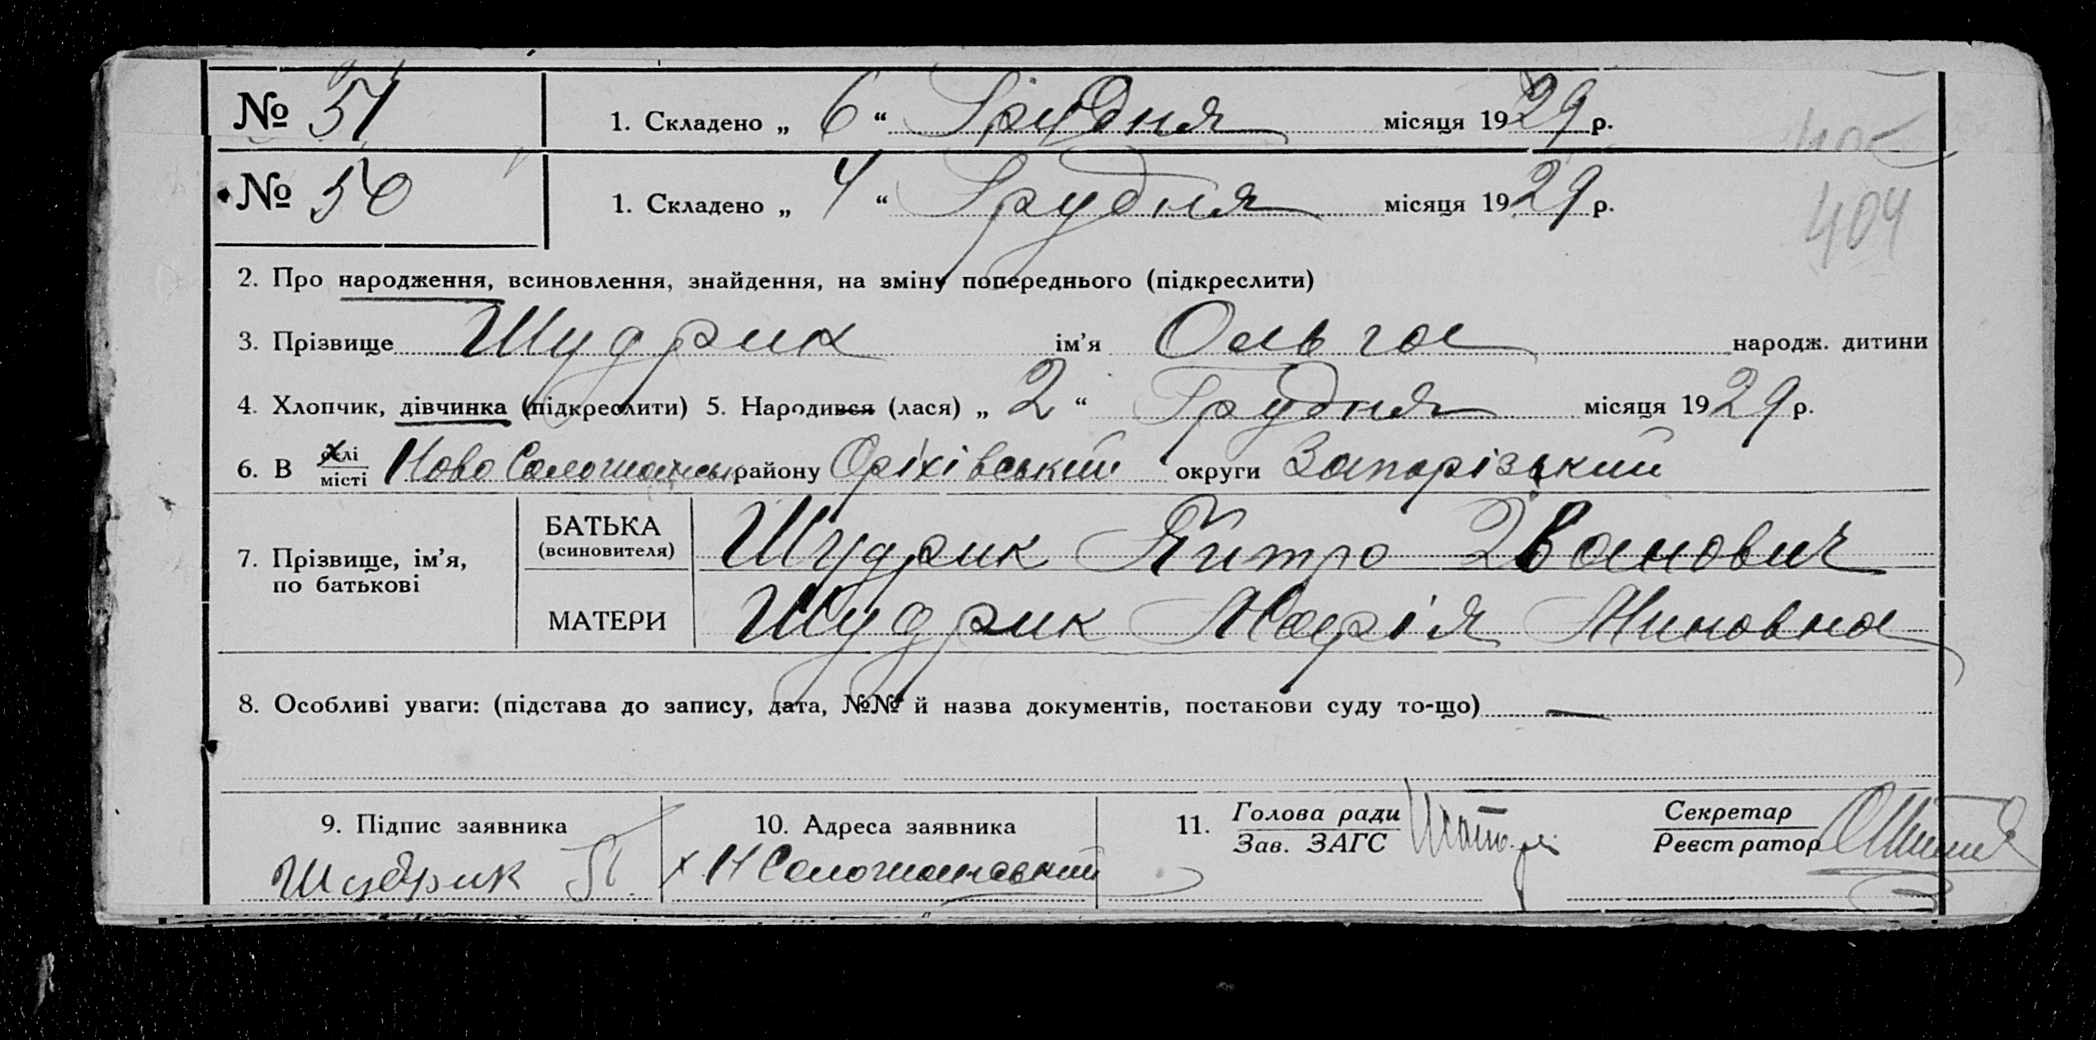 № 51 1. Складено „ 6 “ Грудня місяця 1929 р.
№ 50 1. Складено „ 4 “ Грудня місяця 1929 р.
404
2. Про народження, всиновлення, знайдення, на зміну попереднього (підкреслити)
3. Прізвище Щудрик ім’я Ольга народж. дитини
4. Хлопчик, дівчинка (підкреслити) 5. Народився (лася) „ 2 “ Грудня місяця 1929 р.
6. В селі місті Ново району Оріхівський округи Запорізький
7. Прізвище, ім’я, по батькові
БАТЬКА (всиновителя) Щудрик Иванович
МАТЕРИ Щудрик Марія Миновна
8. Особливі уваги: (підстава до запису, дата, №№ й назва документів, постанови суду то-що) —
9. Підпис заявника 10. Адреса заявника 11. Голова ради Зав. ЗАГС Секретар Реєстратор
Щудрик П.